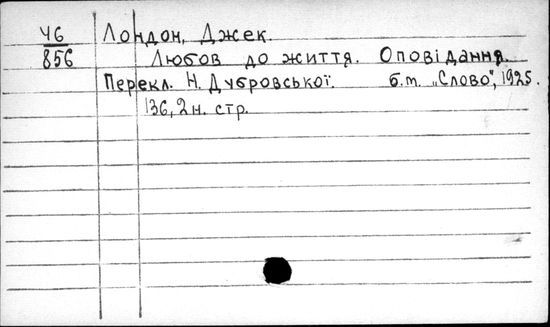 46 Лондон, Джек.
856 Любов до життя. Оповідання.
Перекл. Н. Дубровської. б.м. „Слово", 1925.
136, 2 н. стр.